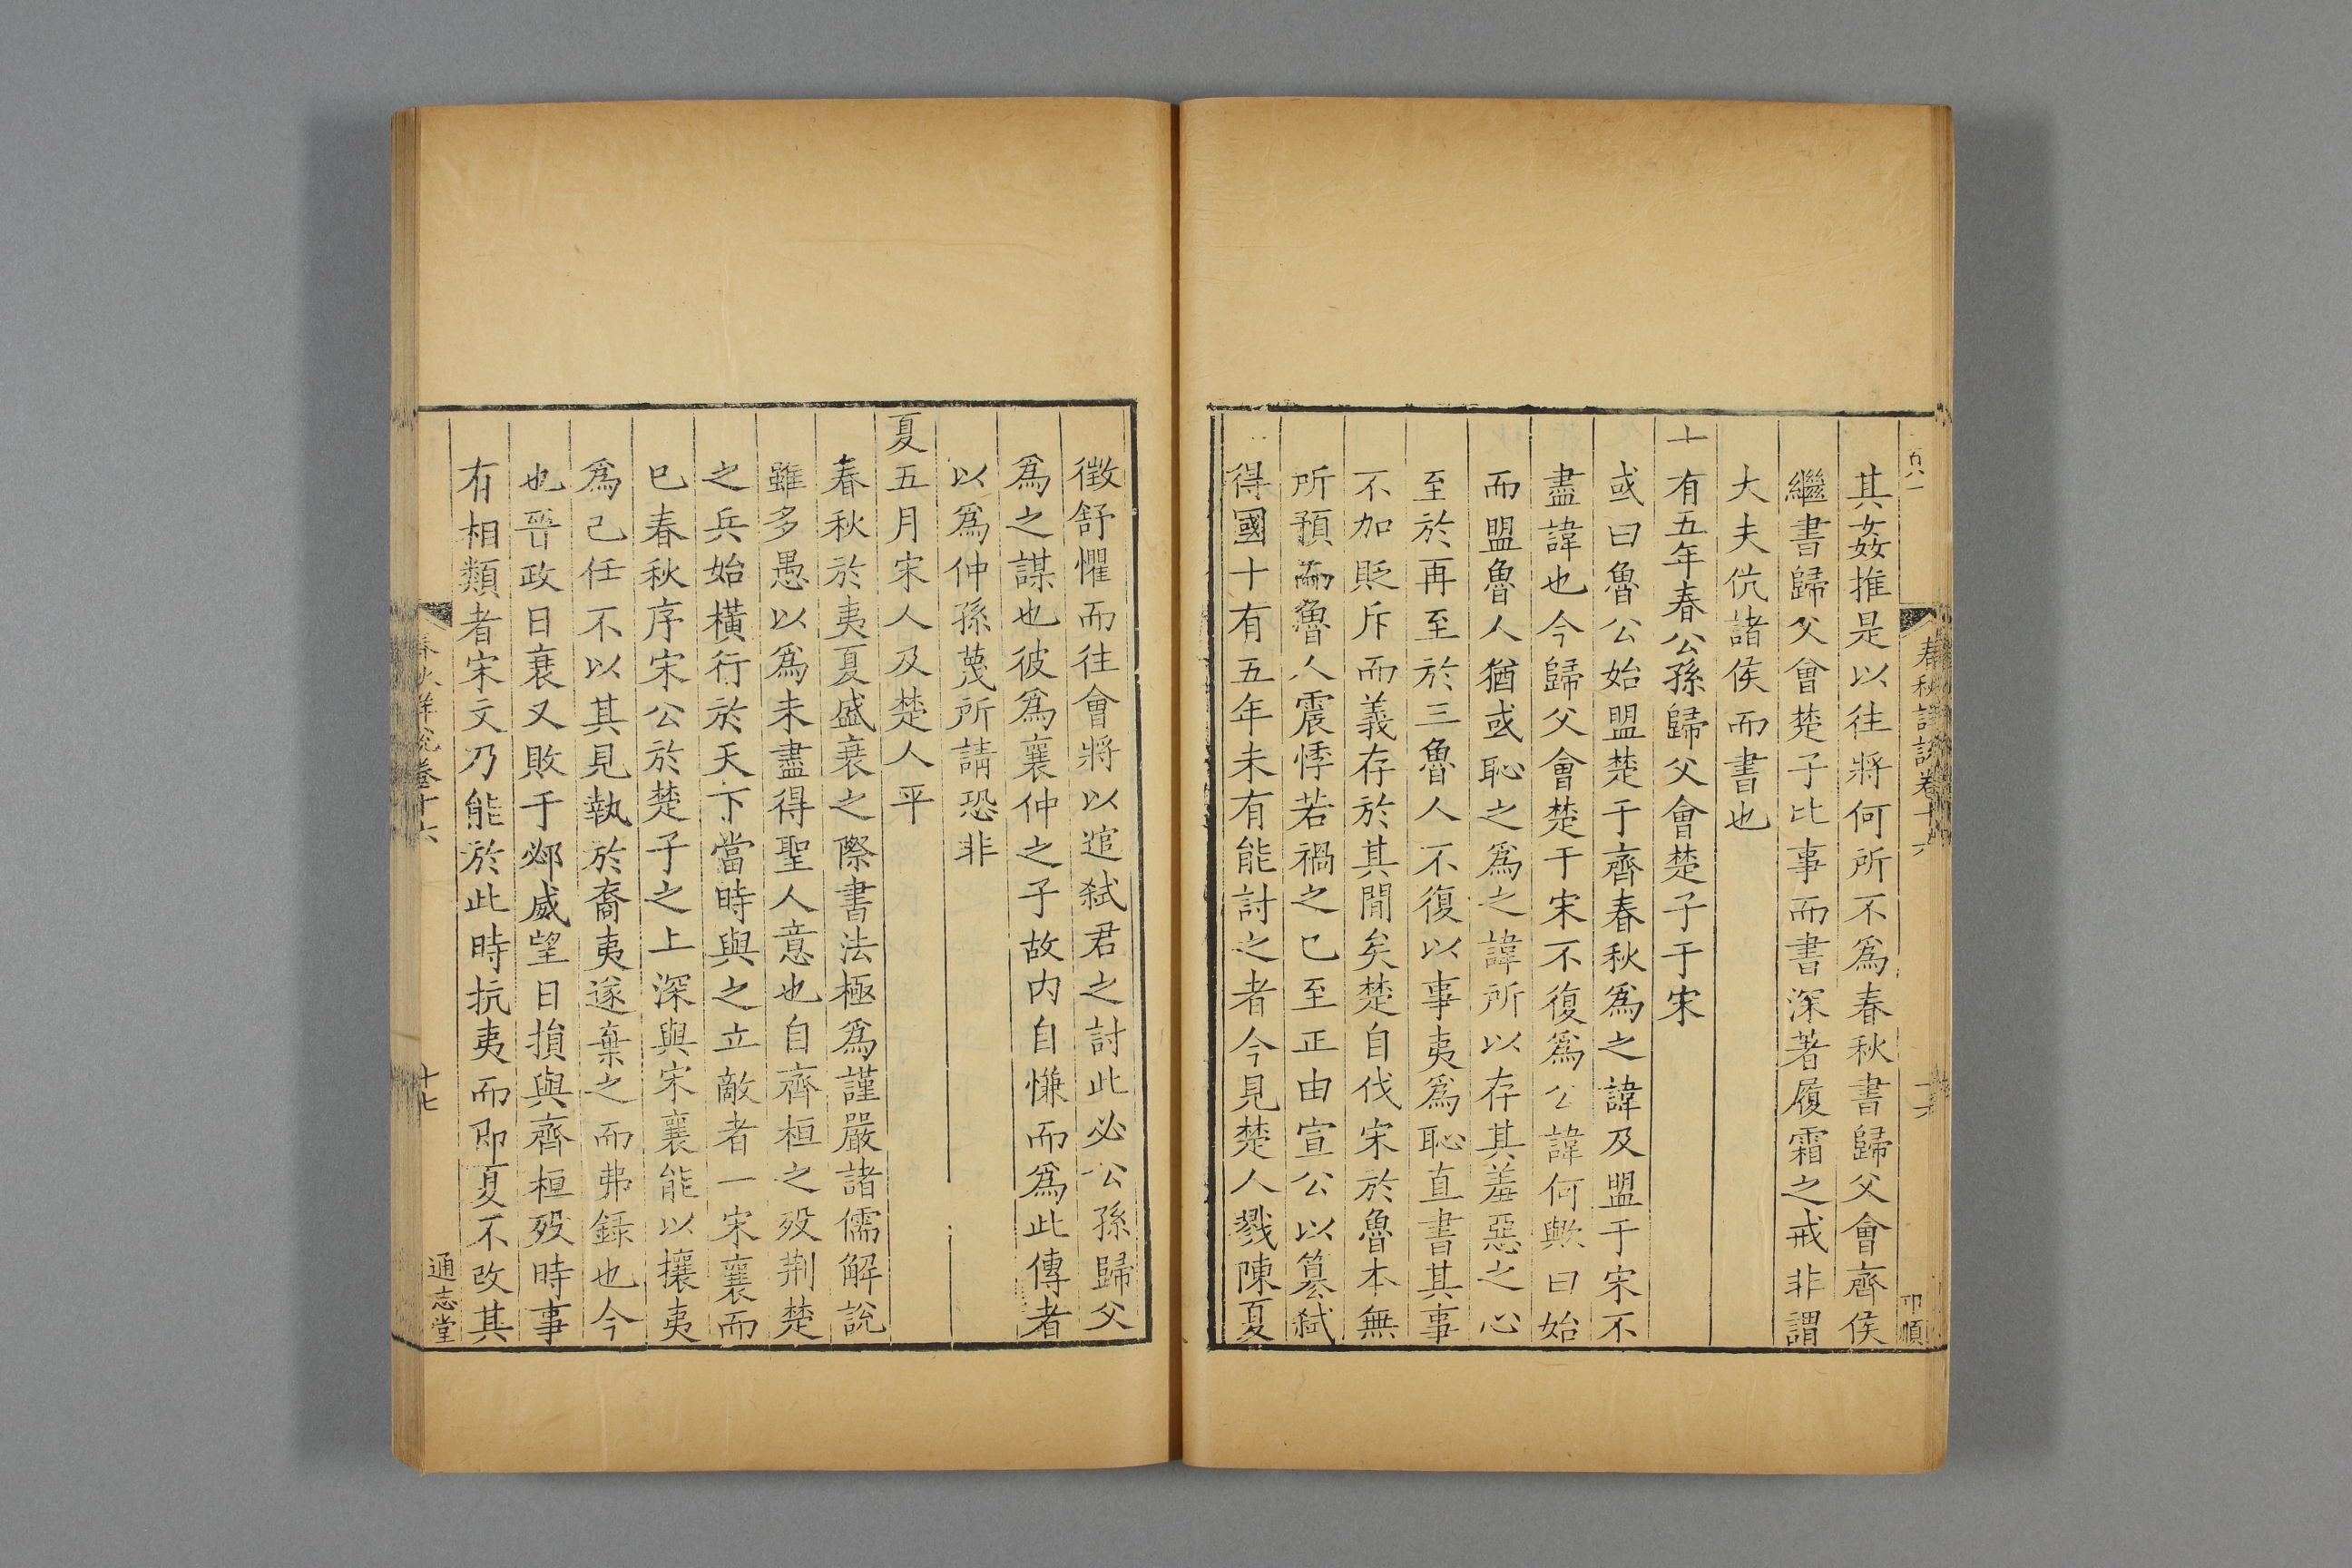 其姦推是以往將何所不爲春秋書歸父會齊侯
繼書歸父會楚子比事而書深著履霜之戒非謂
大夫伉諸侯而書也
十有五年春公孫歸父會楚子于宋
或曰魯公始盟楚于齊春秋爲之諱及盟于宋不
盡諱也今歸父會楚于宋不復爲公諱何歟曰始
而盟魯人猶或恥之爲之諱所以存其羞惡之心
至於再至於三魯人不復以事夷爲恥直書其事
不加貶斥而義存於其閒矣楚自伐宋於魯本無
所預而魯人震悸若禍之已至正由宣公以篡弑
得國十有五年未有能討之者今見楚人戮陳夏
徵舒懼而往會將以逭弑君之討此必公孫歸父
爲之謀也彼爲襄仲之子故内自慊而爲此傳者
以爲仲孫蔑所請恐非
夏五月宋人及楚人平
春秋於夷夏盛衰之際書法極爲謹嚴諸儒解說
雖多愚以爲未盡得聖人意也自齊桓之殁荆楚
之兵始橫行於天下當時與之立敵者一宋襄而
已春秋序宋公於楚子之上深與宋襄能以攘夷
爲己任不以其見執於裔夷遂棄之而弗録也今
也晉政日衰又敗于邲威望日損與齊桓殁時事
有相類者宋文乃能於此時抗夷而即夏不改其
春秋詳說卷十六
十七
通志堂